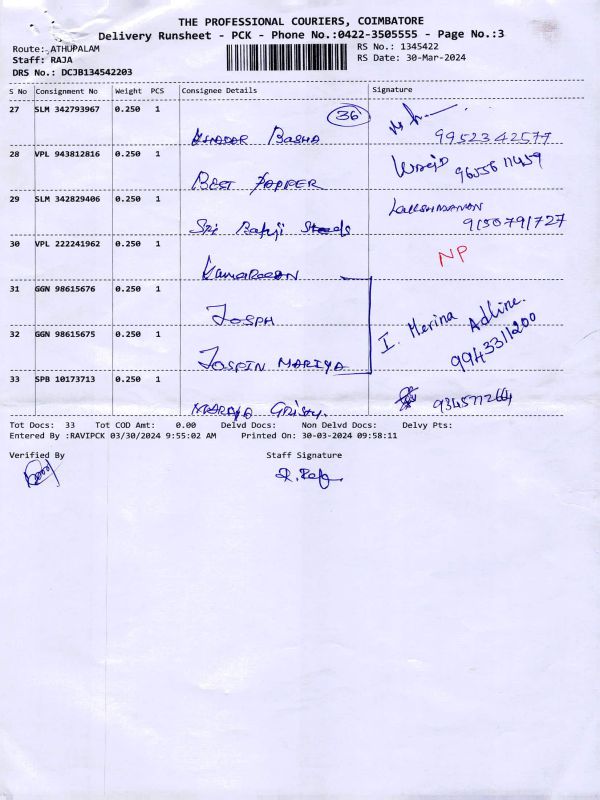 THE PROFESSIONAL COURIERS, COIMBATORE
Delivery Runsheet - PCK - Phone No.:0422-3505555 - Page No.:3
Route: ATHUPALAM
RS No.: 1345422
Staff: RAJA
RS Date: 30-Mar-2024
DRS No.: DCJB134542203
S No Consignment No Weight PCS Consignee Details Signature
27 SLM 342793967 0.250 1 36
Basha 9952342577
28 VPL 943812816 0.250 1
BEST PEPPER Wajid 9655611459
29 SLM 342829406 0.250 1
Sri Balaji Steels LAKSHMANAN 9150791727
30 VPL 222241962 0.250 1 NP
31 GGN 98615676 0.250 1
JOSPH
I. Merina Adline.
32 GGN 98615675 0.250 1
JOSPIN MARIYA 9943311200
33 SPB 10173713 0.250 1
Tot Docs: 33 Tot COD Amt: 0.00 Delvd Docs: Non Delvd Docs: Delvy Pts:
Entered By :RAVIPCK 03/30/2024 9:55:02 AM Printed On: 30-03-2024 09:58:11
Verified By Staff Signature